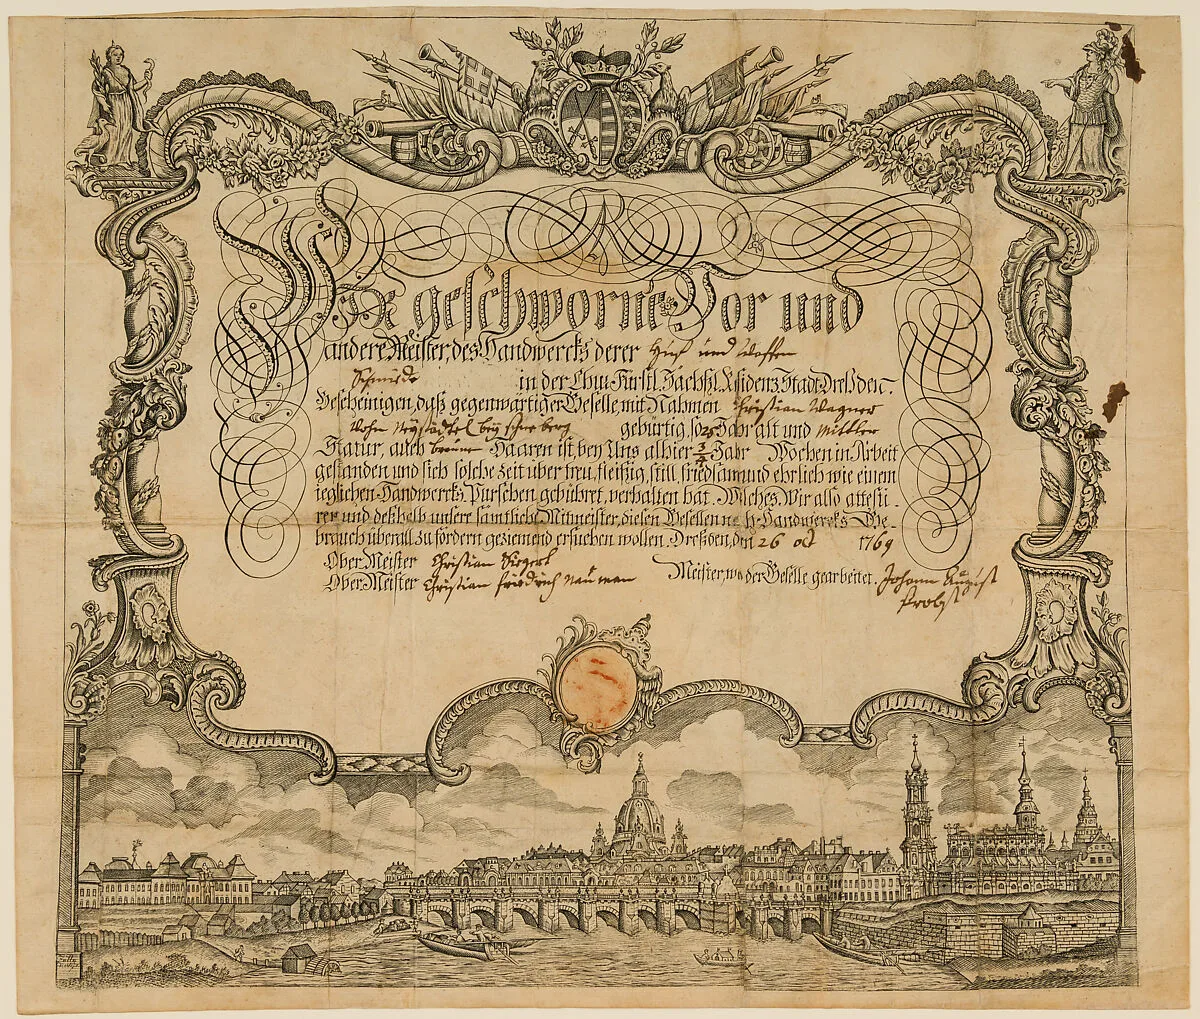 Wir geschworne Vor und
andere Meister des Handwercks derer Huf und Waffen
Schmiede in der Chur Fürstl. Sächßl. Residenz Stadt Dreßden
Bescheinigen, daß gegenwärtiger Geselle, mit Nahmen Christian Wagner
Neustädtel bey Schneeberg gebürtig, so 25 Jahr alt und Mittler
Statur, auch braune Haaren ist, bey Uns alhier 3/4 Jahr Wochen in Arbeit
gestanden und sich solche Zeit über treu, fleißig, still, friedsam und ehrlich wie einem
jeglichen Handwercks Purschen gebühret, verhalten hat. Welches Wir also attesti-
ren und deßhalb unsere sämtliche Mitmeister, diesen Gesellen nach Handwercks Ge-
brauch überall zu fördern geziemend ersuchen wollen. Dreßden, den 26 oct 1769
Ober Meister Christian
Ober Meister Christian Friedrich Nauman
Meister, wo der Geselle gearbeitet. Johann August
Probst